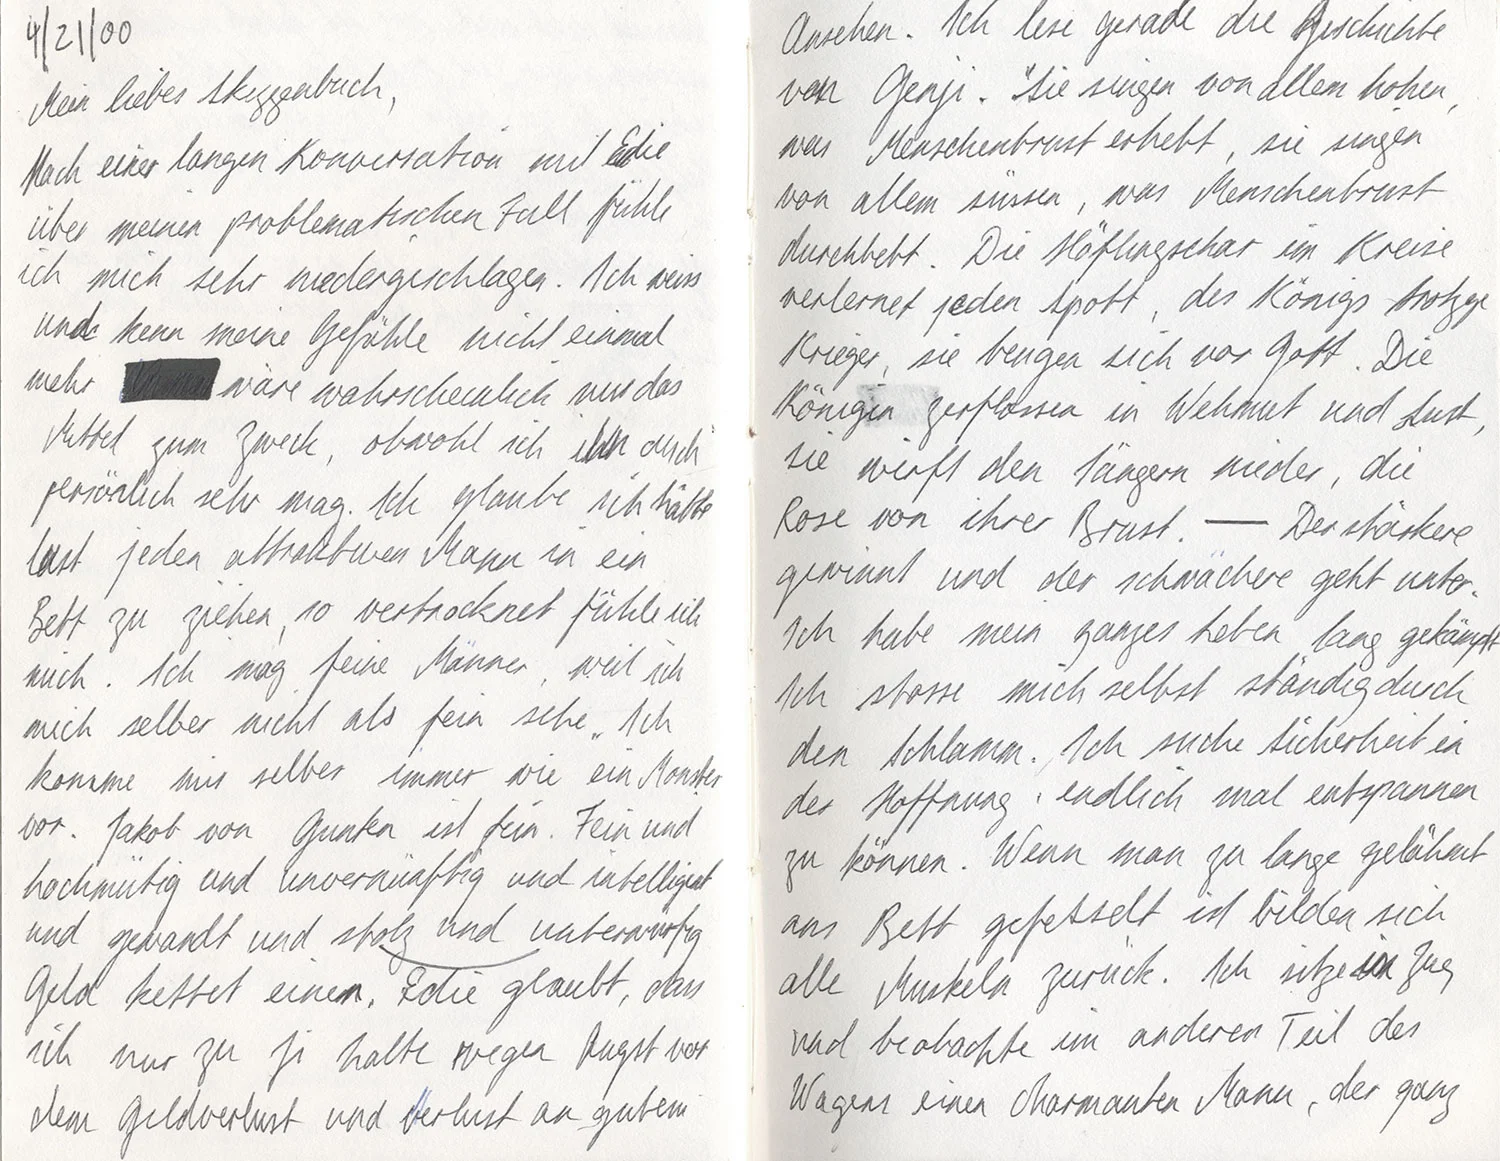 4/21/00
Mein liebes Skizzenbuch,
Nach einer langen Konversation mit Edie
über meinen problematischen Fall fühle
ich mich sehr niedergeschlagen. Ich weiss
und kenn meine Gefühle nicht einmal
mehr wäre wahrscheinlich nur das
Mittel zum Zweck, obwohl ich ihn auch
persönlich sehr mag. Ich glaube ich hätte
Lust jeden attraktiven Mann in ein
Bett zu ziehen, so vertrocknet fühle ich
mich. Ich mag feine Männer, weil ich
mich selber nicht als fein sehe. Ich
komme mir selber immer wie ein Monster
vor. Jakob von Gunten ist fein. Fein und
hochmütig und unvernünftig und intelligent
und gewandt und stolz und unterwürfig
Geld kettet einen. Edie glaubt, dass
ich nur zu halte wegen Angst vor
dem Geldverlust und Verlust an gutem
Ansehen. Ich lese gerade die Geschichte
von Genji. "Sie singen von allem hohen,
was Menschenbrust erhebt, sie singen
von allem süssen, was Menschenbrust
durchbebt. Die Höflingschar im Kreise
verlernet jeden Spott, des Königs trotzge
Krieger, sie beugen sich vor Gott. Die
Königin zerflossen in Wehmut und Lust,
sie wirft den Sängern nieder, die
Rose von ihrer Brust. — Der stärkere
gewinnt und der schwächere geht unter.
Ich habe mein ganzes Leben lang gekämpft
Ich stosse mich selbst ständig durch
den Schlamm. Ich suche Sicherheit in
der Hoffnung, endlich mal entspannen
zu können. Wenn man zu lange gelähmt
ans Bett gefesselt ist bilden sich
alle Muskeln zurück. Ich sitze im Zug
und beobachte im anderen Teil des
Wagens einen charmanten Mann, der ganz